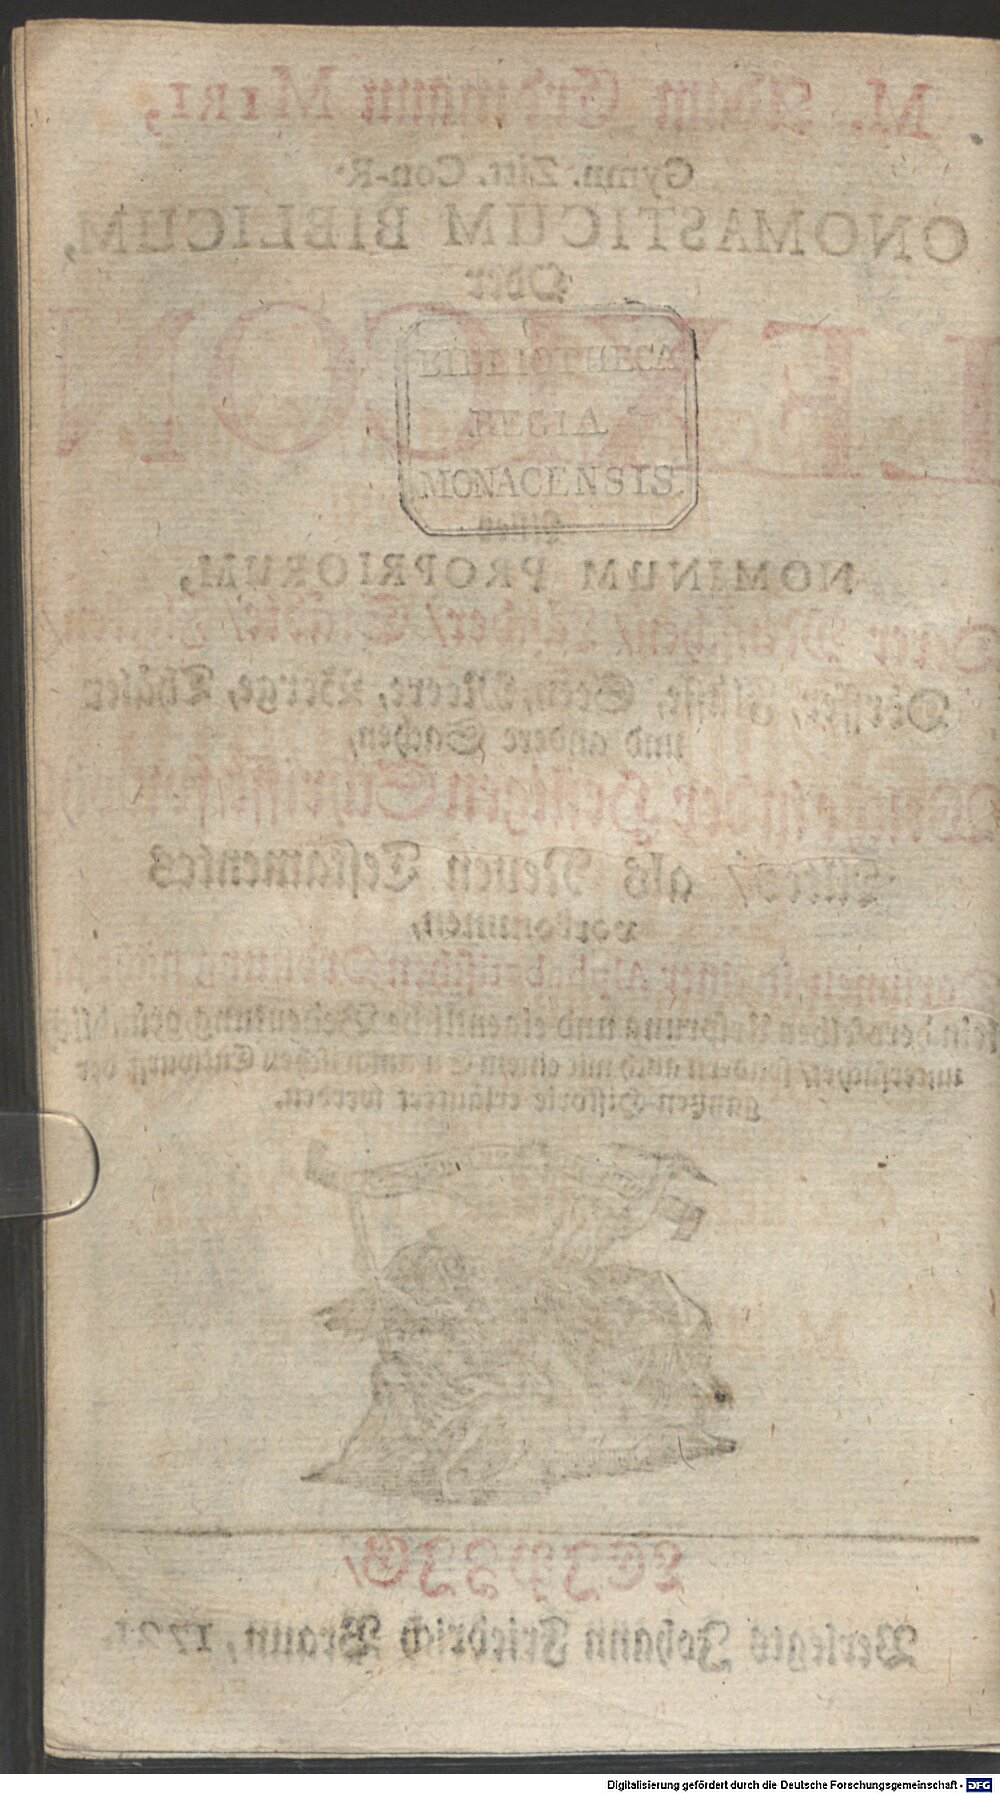 M. Adam Erdmann MIRI,
Gymn. Zitt. Con-R.
ONOMASTICUM BIBLICUM,
Oder
LEXICON
BIBLIOTHECA
REGIA
MONACENSIS
NOMINUM PROPRIORUM,
Derer Menschen/ Länder/ Städte/
Dörffer, Flüsse, Seen, Meere, Berge, Thäler
und andere Sachen,
Welche in der Heiligen Schrifft so wohl
Altes/ als Neuen Testamentes
vorkommen,
Darinnen in einer Alphabetischen Ordnung nicht
derselben Ursprung und eigentliche Bedeutung gründlich
untersuchet/ sondern auch mit einem Entwurff der
gantzen Historie erläutert werden.
LEIPZIG/
Verlegts Johann Friedrich Braun, 1721.
Digitalisierung gefördert durch die Deutsche Forschungsgemeinschaft - DFG